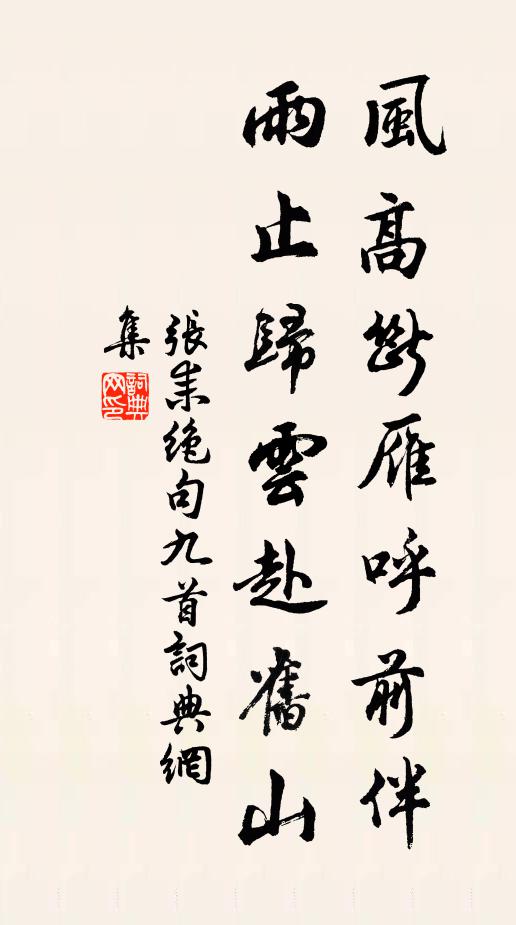 風高斷雁呼前伴
雨止歸雲赴舊山
張耒絶句九首詞典網
集
詞典
网印